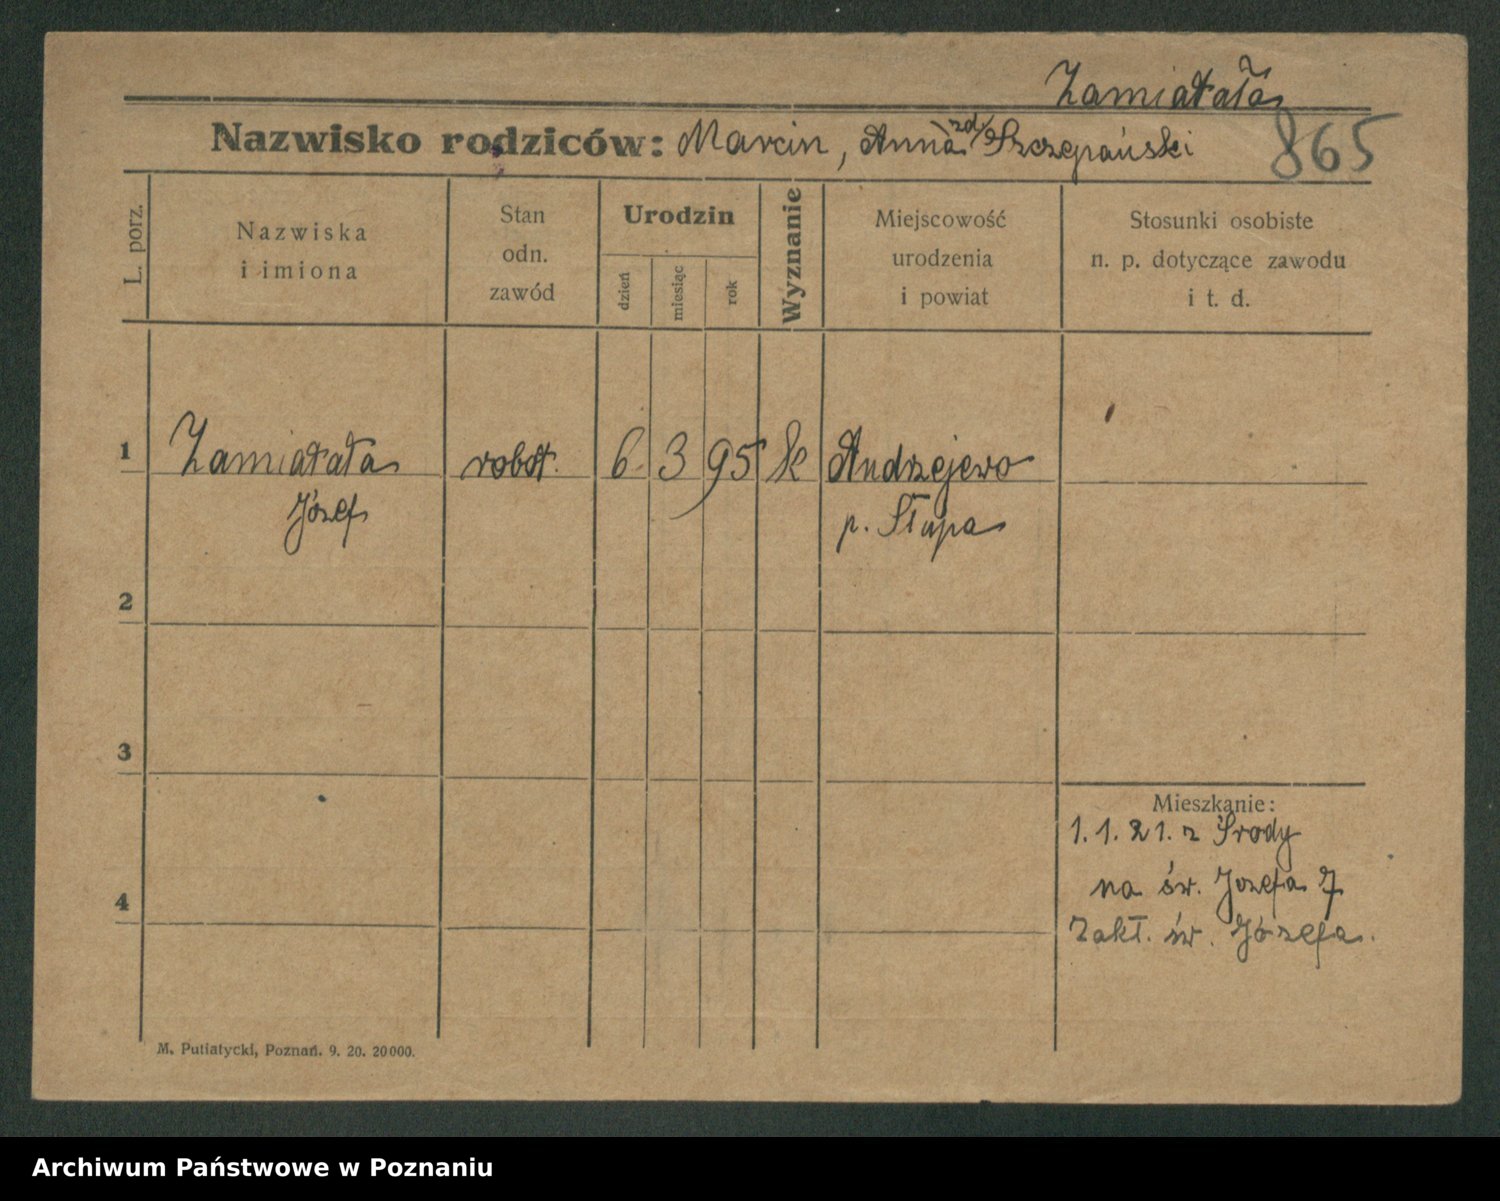 Zamiatała
Nazwisko rodziców: Marcin, Anna zd/ Szczepański
865
L. porz.
Nazwiska
i imiona
Stan
odn.
zawód
Urodzin
dzień
miesiąc
rok
Wyznanie
Miejscowość
urodzenia
i powiat
Stosunki osobiste
n. p. dotyczące zawodu
i t. d.
1 Zamiatała robot. 6. 3 95 k Andrzejewo
Józef p. Słupa
2
3
Mieszkanie:
1.1.21. z Środy
na św. Jozefa 7
4
Zakł. św. Józefa.
M. Putiatycki, Poznań. 9. 20. 20000.
Archiwum Państwowe w Poznaniu